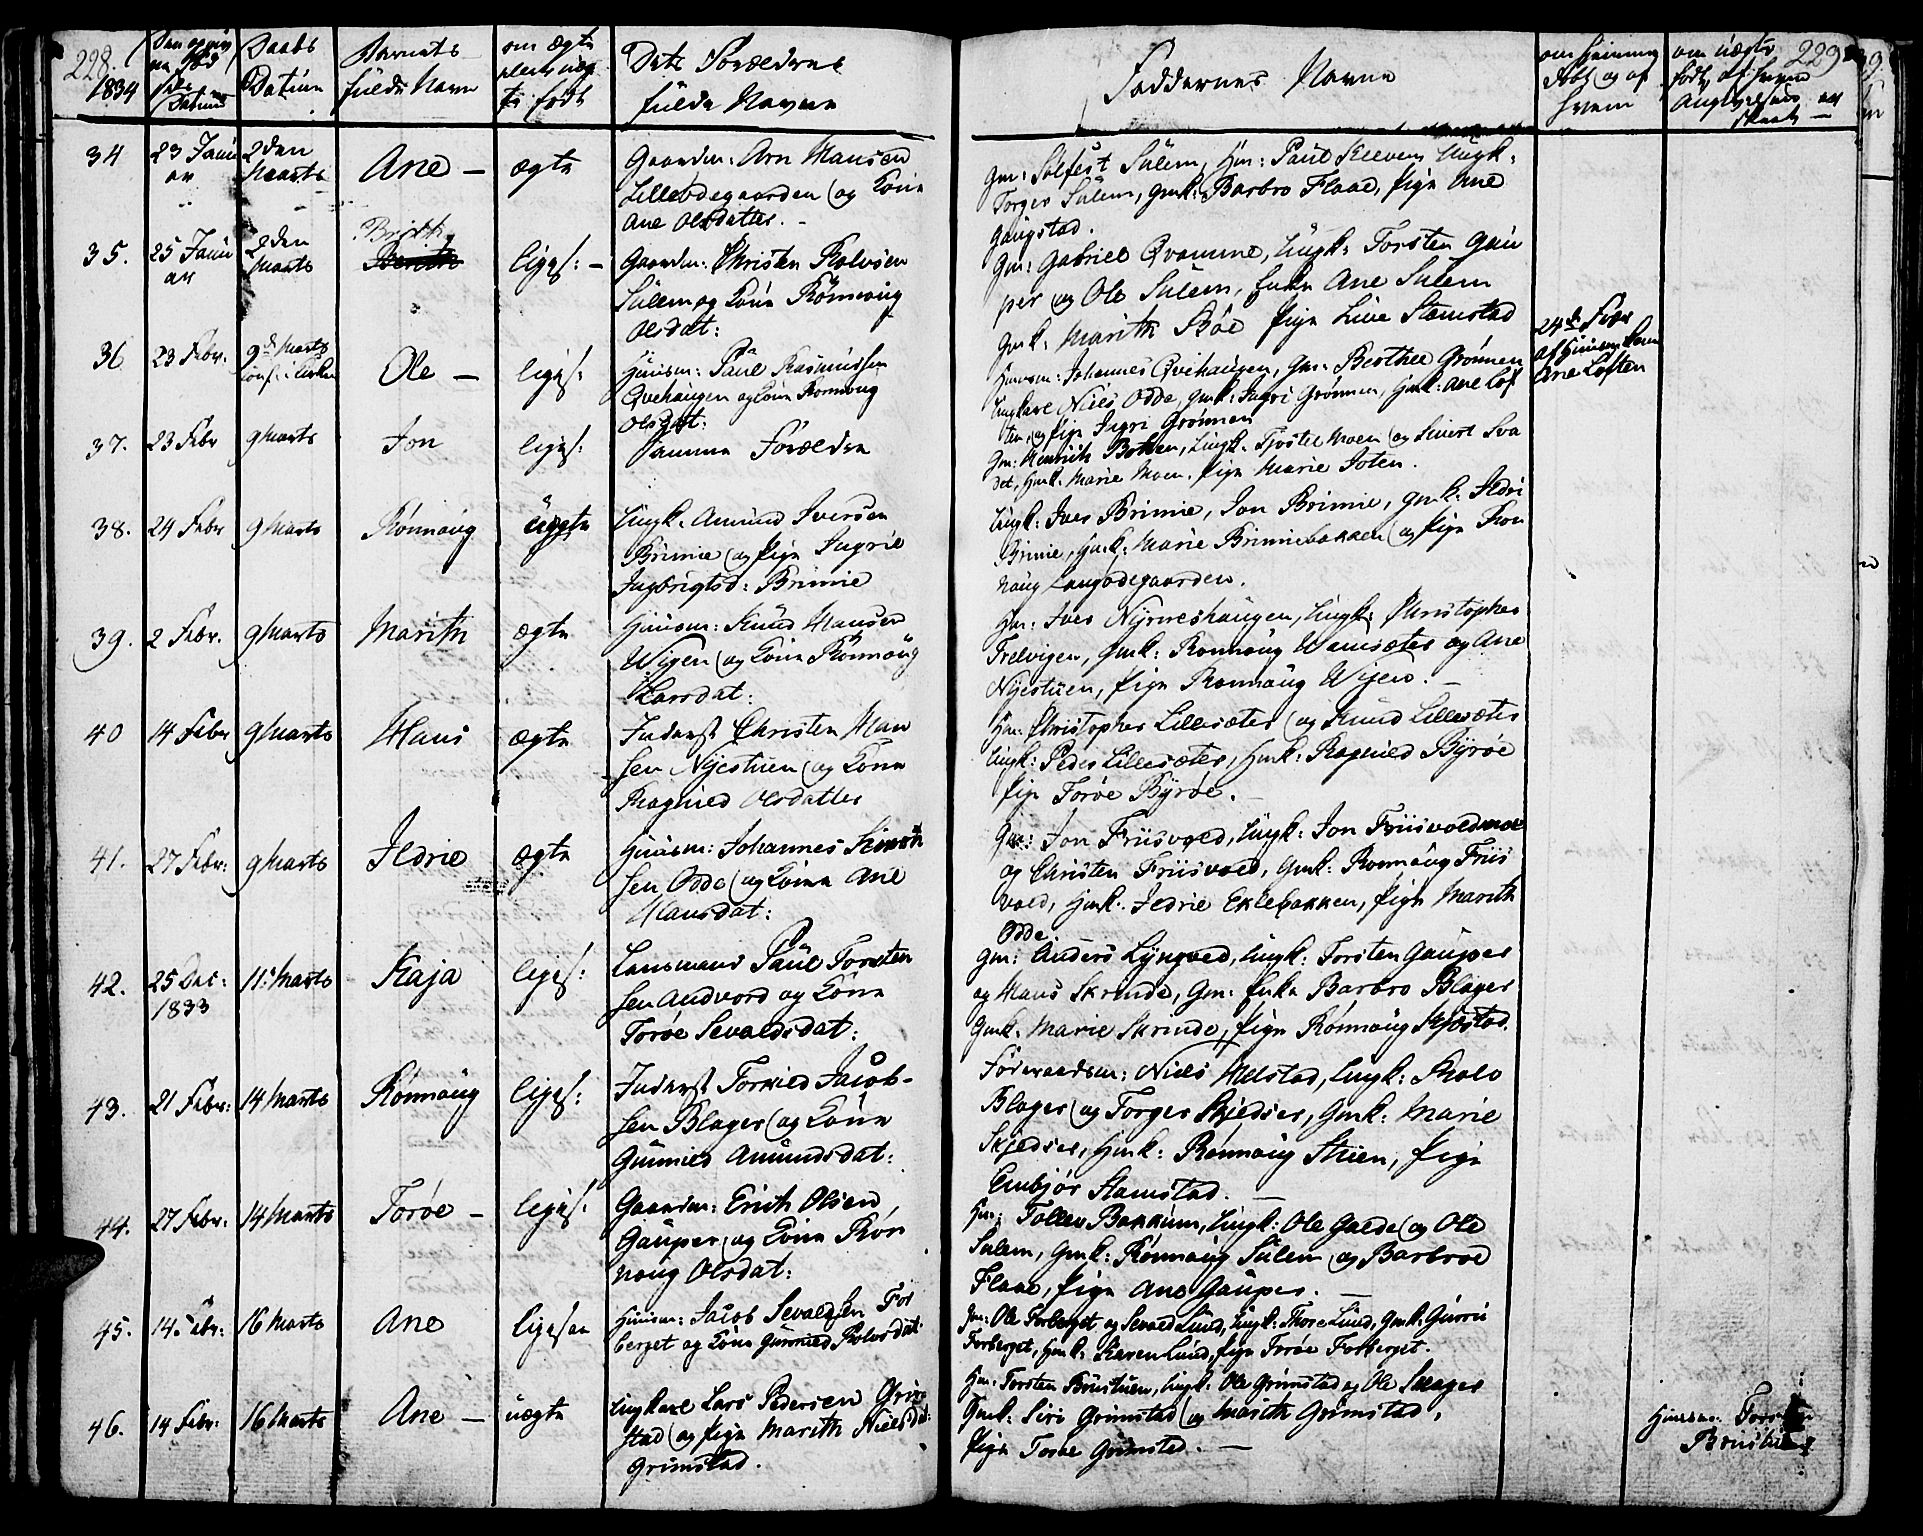 228. 1834
Daabs Datum
Barnets fulde Navn
om ægte eller uægte født
Dets Forældres fulde Navne
Faddernes Navne
om hjemmedøbt og af hvem
229
34 23 Januar 2den Marts Ane — ægte Gaardm: Arn Hansen
Lilleødegaarden og Kone
Ane Olsdatter. —
Gm: Solfest Sulem, Hm: Paul Kleven, Ungk:
Torger Sulem, Gmk: Barbro Flaae, Pige Ane
Gaugstad.
35. 25 Januar 2den Marts Brith liges: — Gaardm: Christen Rolvsen
Sulem og Kone Rønnoug
Olsdat:
Gm: Gabriel Qvamme, Ungk: Torsten Gau
per og Ole Sulem, Enke Ane Sulem
Gmk: Marith Bøe Pige Live Stamstad
36 23 Febr. 9de Marts conf: i Kirken Ole — liges: Huusm: Paul Rasmussen
Qvehaugen og Kone Rønnoug
Olsdat:
Huusm: Johannes Qvehaugen, Gm: Berthel Grønnen
Ungkarl Niels Odde, Gmk: Ingri Grønnen, Hmk: Ane Lof
ten, og Pige Ingri Grønnen
24de Febr
af Huusm: Kone
Ane Loften
37. 23 Febr 9 Marts Jon ligs: Samme Forældre
Gm: Henrich Bakken, Ungk: Tjostel Moen og Sivert Sva
det, Hmk: Marie Moen, Pige Marie Joten.
38. 24 Febr 9 Marts Rønnaug uægte Ungk: Amund Iversen
Brimie og Pige Ingrie
Ingbrigtsd: Brimie
Ungk: Iver Brimie, Jon Brimie, Gmk: Jldri
Brimie, Hmk: Marie Brimiebakken og Pige Røn
naug Langødegaarden.
39. 2 Febr. 9 Marts Marith ægte Huusm: Knud Hansen
Wigen og Kone Rønnaug
Larsdat:
Hm: Iver Nyrneshaugen, Ungk: Christopher
Trelvigen, Gmk: Ronnaug og Ane
Nyestuen, Pige Ronnaug Wigen. —
40 14 Febr 9 Marts Hans ægte Inderst Christen Han
sen Nyestuen og Kone
Ragnild Olsdatter
Hm: Christopher Lillesæter og Knud Lillesæter
Ungk: Peder Lillesæter, Hmk: Ragnild Byrøe
Pige Torøe Byrøe. —
41. 27 Febr: 9 Marts Jldrie ægte Huusm: Johannes
sen Odde og Kone Ane
Hansdat:
Gm: Jon Friisvold, Ungk: Jon Friisvoldmoe
og Christen Friisvold, Gmk: Ronnaug Friis
vold, Hmk: Jldrie Eklebakken, Pige Marith
Odde.
42. 25 Dec: 1833 11: Marts Kaja ligs: Lensmand Paul Torsten
sen Andvord og Kone
Torøe Sevaldsdat:
Gm: Anders Lyngved, Ungk: Torsten Gauper
og Hans Skrinde, Gm: Enke Barbro Blager
Gmk: Marie Skrinde, Pige Rønnaug Skjæstad.
43. 21 Febr: 14 Marts Rønnaug liges: Inderst Torkild Jacob-
sen Blager og Kone
Gunnild Amundsdat:
Føderaadsm: Niels Melstad, Ungk: Rolv
Blager og Torger Skjedser, Gmk: Marie
Skjedser, Hmk: Rønnaug Stuen, Pige
Embjør Stamstad. —
44. 27 Febr: 14 Marts Torøe — liges: Gaardm: Erich Olsen
Gauper og Kone Røn
naug Olsdat:
Hm: Tollev Bakkum, Ungk: Ole Galde og Ole
Sulem, Gmk: Rønnaug Sulem og Barbroe
Flaae, Pige Ane Gauper. —
45. 14 Febr: 16 Marts Ane ligesaa Huusm: Jacob Sevaldsen For
berget og Kone Gunnild Rolvsdat:
Gm: Ole Forberget og Sevald Lund, Ungk: Thore Lund, Gmk: Guroe
Forberget, Hmk: Karen Lund, Pige Torøe Forberget.
46. 14 Febr: 16 Marts Ane — uægte Ungkarl Lars Pedersen Grim
stad og Pige Marith Nielsdat:
Grimstad.
Hm: Torsten Brustuen, Ungk: Ole Grimstad og Ole
Gmk: Siri Grimstad og Marith Grimstad,
Pige Torøe Grimstad. —
Huusm: Torsten
Brustuen